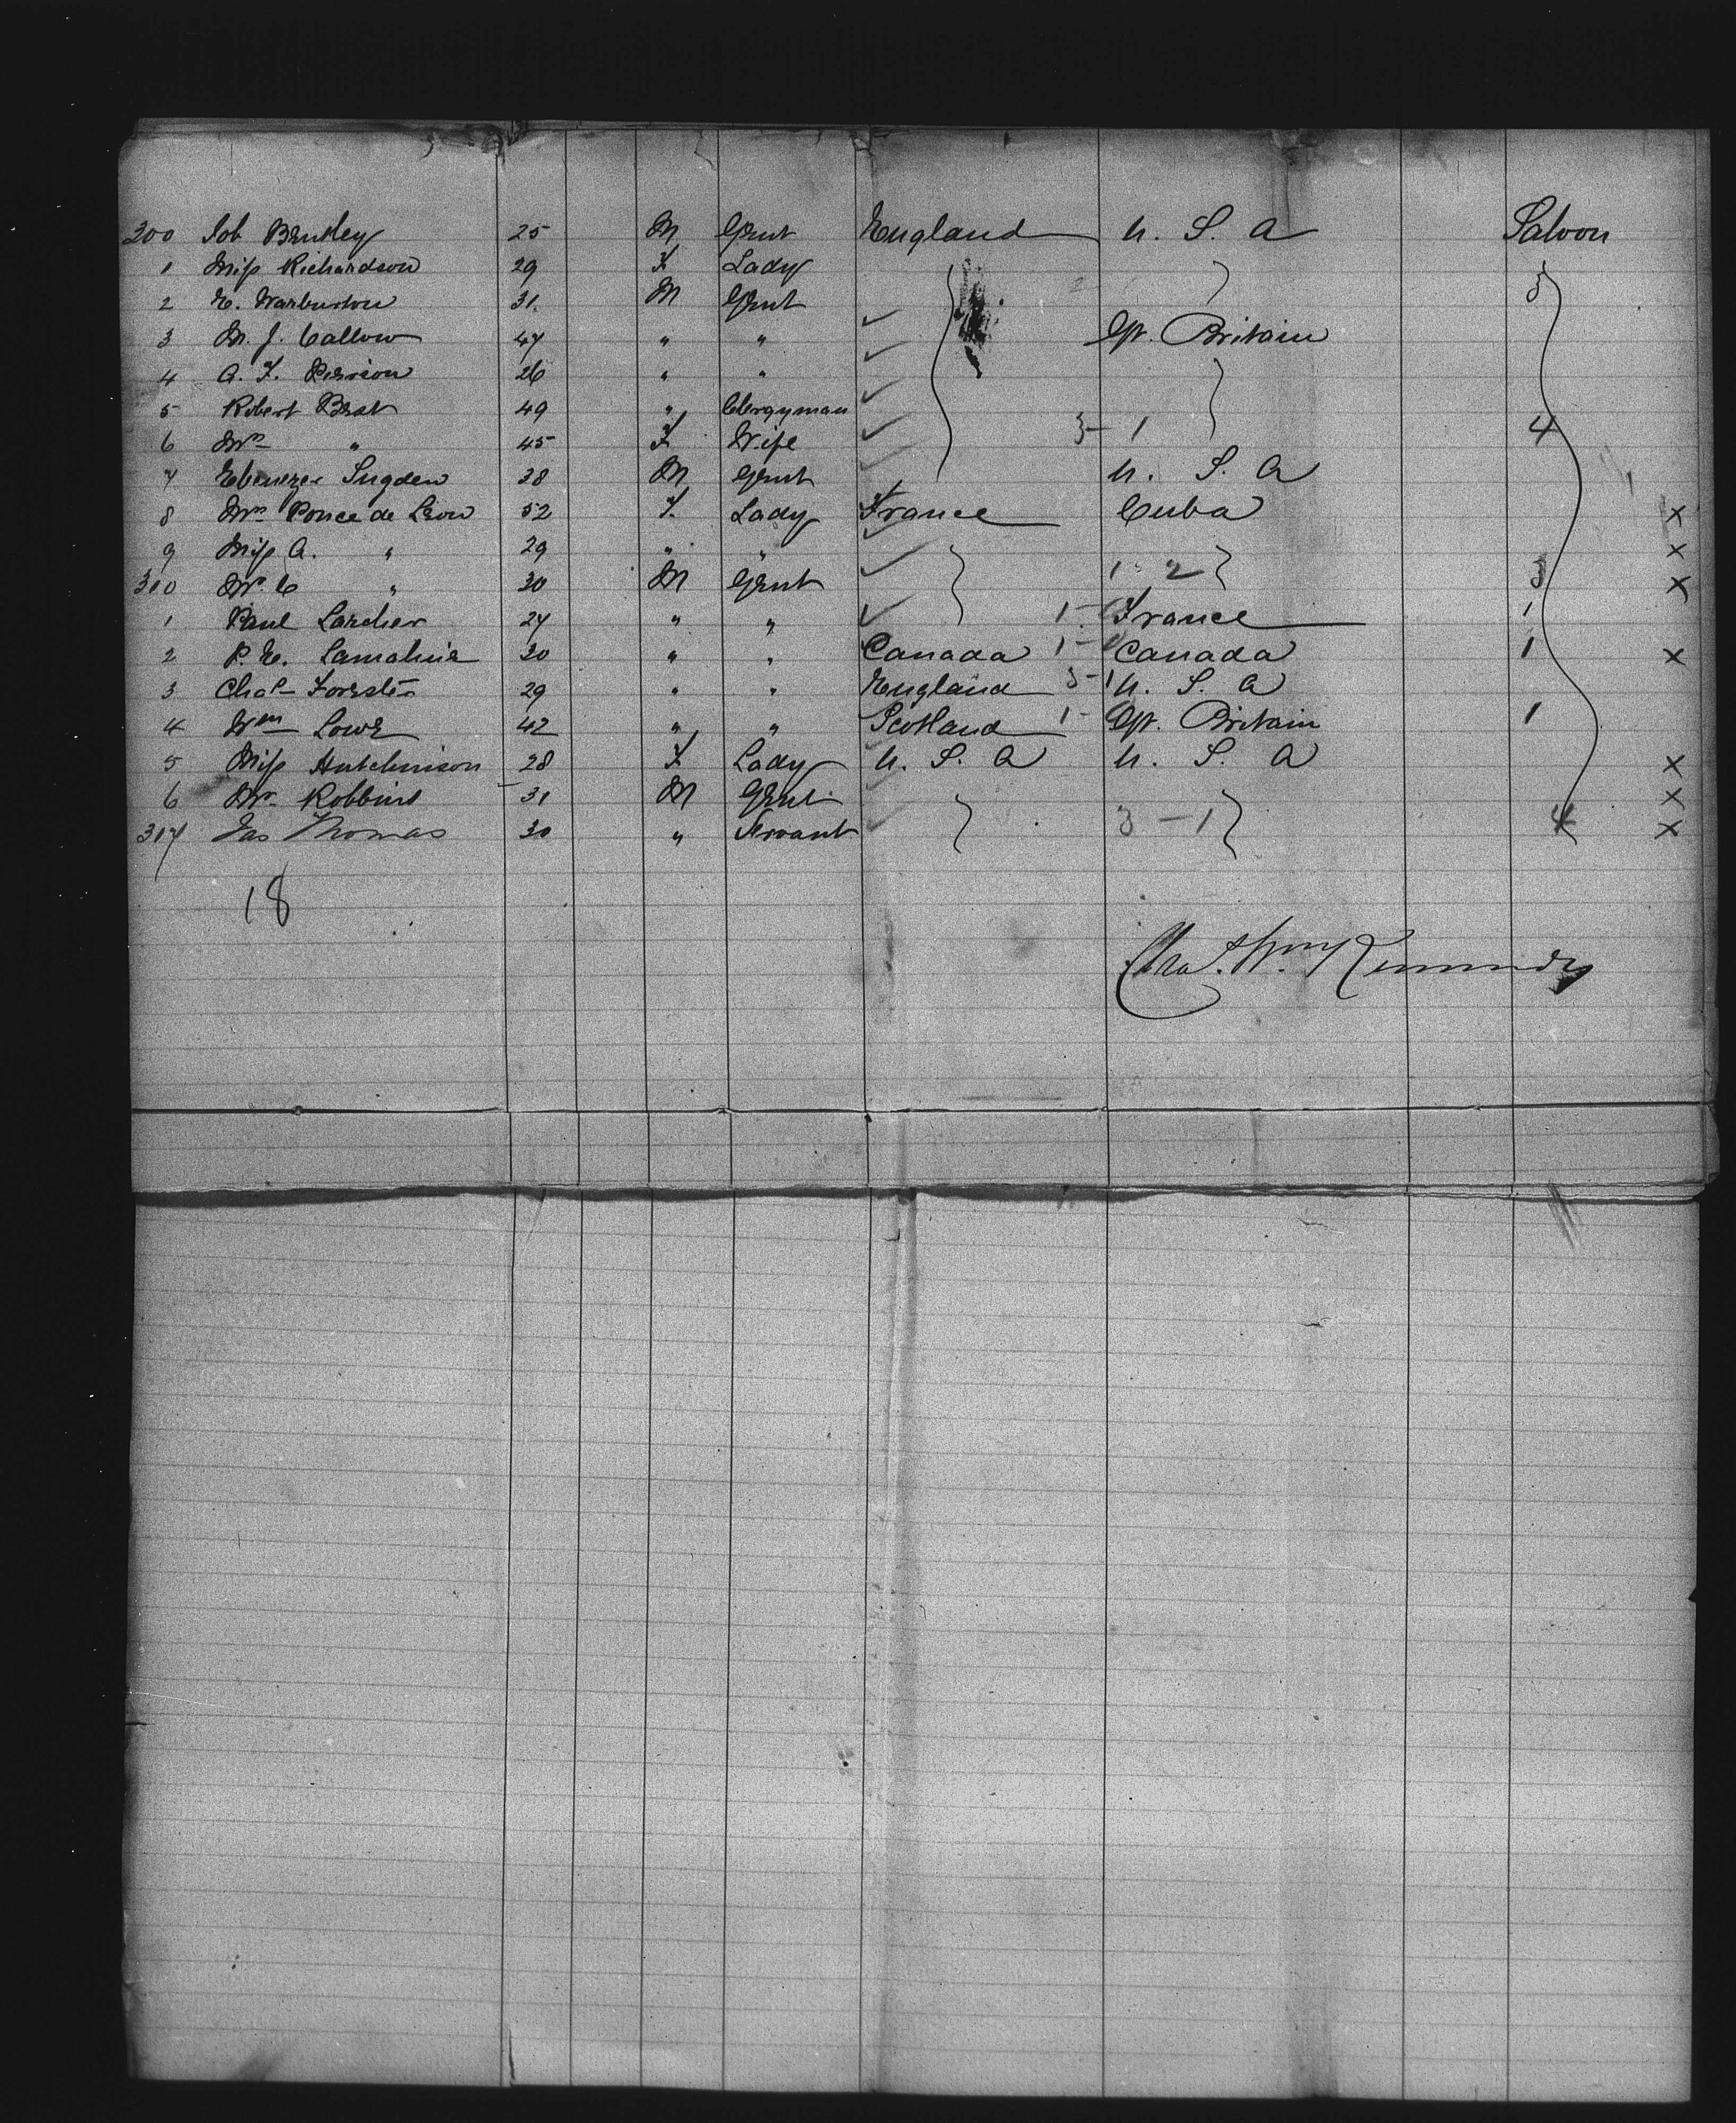 300 Job Bentley 25 M Gent England U. S. A Saloon
1 Miss Richardson 29 F Lady 2 3
2 E. Warburton 31. M Gent
3 M. J. Callow 47 " " Gt. Britain
4 A. F. 26 " "
5 Robert Best 49 " Clergyman
6 Mrs " 45 F Wife 3-1 4
7 Ebenezer Sugden 38 M Gent U. S. A
8 Mrs Ponce de Leon 52 F. Lady France Cuba x
9 Miss A. " 29 " " x
310 Mr. C " 30 M Gent 1 2 3 x
1 Paul Larcher 24 " " 1- France 1
2 P. E. 30 " " Canada 1- Canada 1 x
3 Chas Forster 29 " " England 3-1 U. S. A
4 Wm Lowe 42 " " Scotland 1- Gt. Britain 1
5 Miss Hutchinson 28 F Lady U. S. A U. S. A x
6 Mr Robbins 31 M Gent x
317 Jas Thomas 30 " Servant 3-1 4 x
18